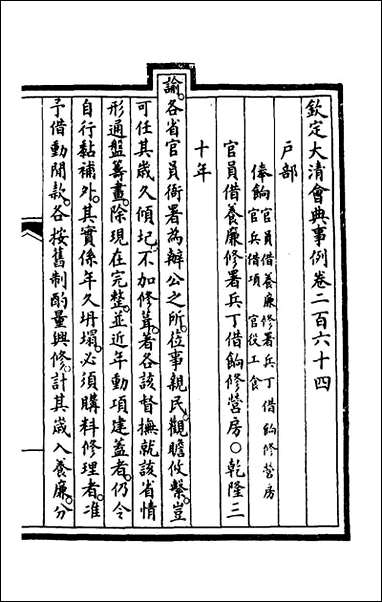 欽定大清會典事例卷二百六十四
戶部
俸餉官員借養廉修署兵丁借餉修營房
官兵借項 官役工食
官員借養廉修署兵丁借餉修營房○乾隆三
十年
諭。各省官員衙署為辦公之所。位事親民。觀瞻攸繫。豈
可任其歲久傾圮。不加修葺。著各該督撫就該省情
形通盤籌畫。除現在完整。並近年動項建蓋者。仍令
自行黏補外。其實係年久坍塌。必須購料修理者。准
予借動閒款。各按舊制酌量興修。計其歲入養廉。分